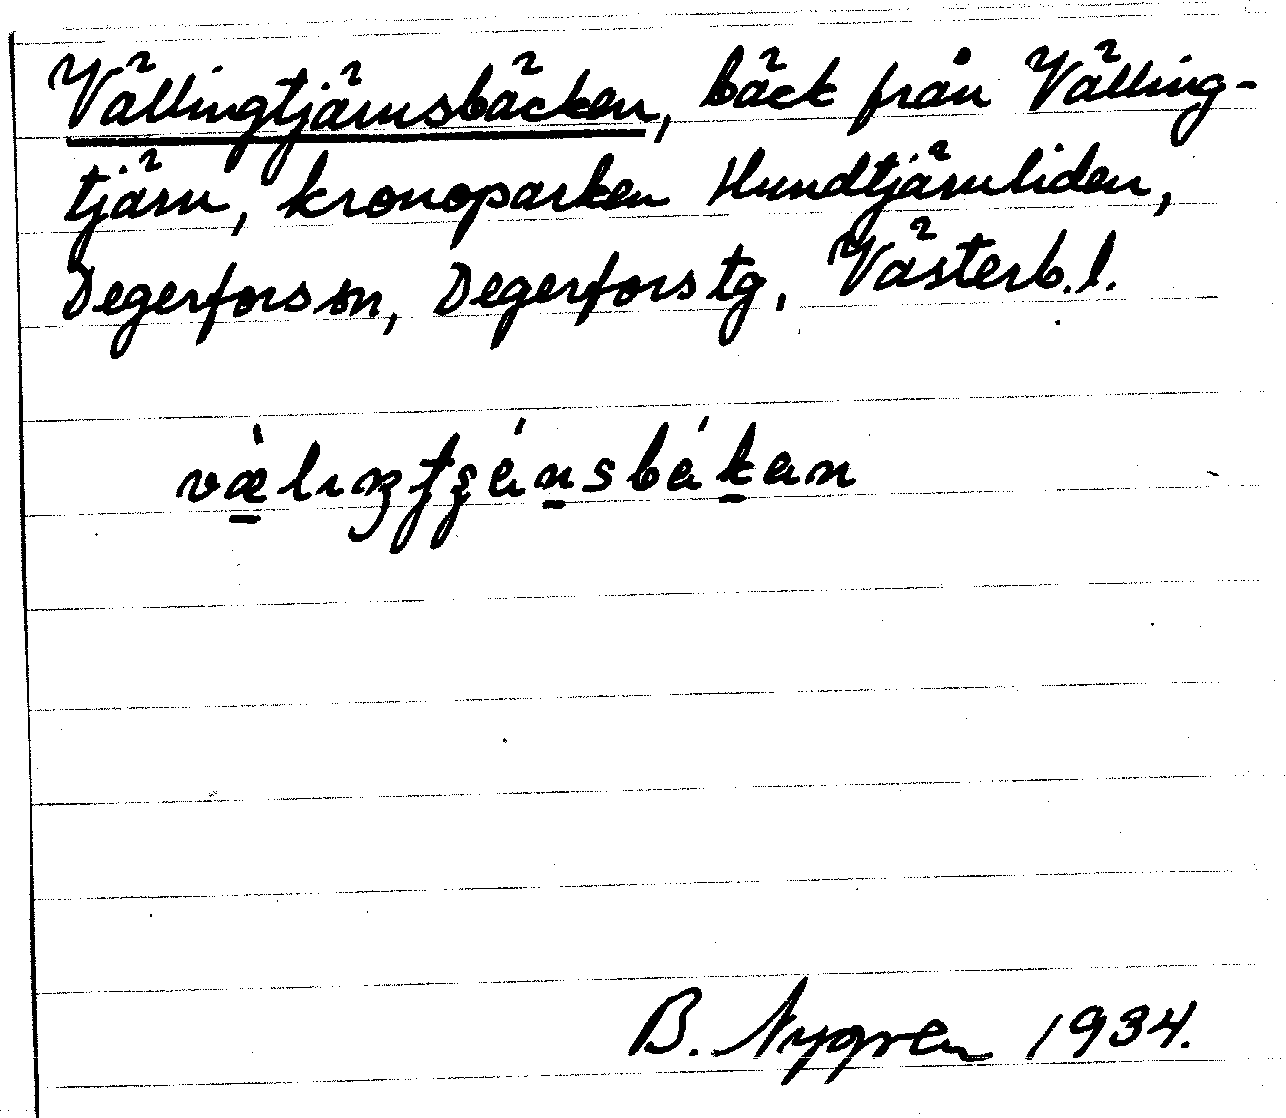 Vällingtjärnsbäcken, bäck från Välling-
tjärn, kronoparken Hundtjärnliden,
Degerfors sn, Degerfors tg, Västerb.l.
B. Nygren 1934.